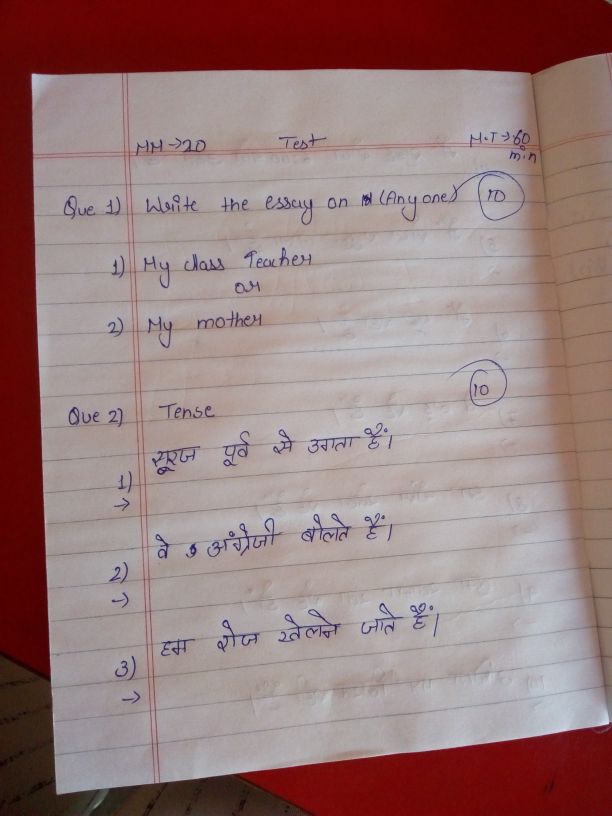 MM→20 Test M.T→60
min
Que 1) Write the essay on (Any one) 10
1) My class Teacher
or
2) My mother
Que 2) Tense 10
सूरज पूर्व से उगता हैं।
1)
→
वे अंग्रेजी बोलते हैं।
2)
→
हम रोज खेलने जाते हैं।
3)
→